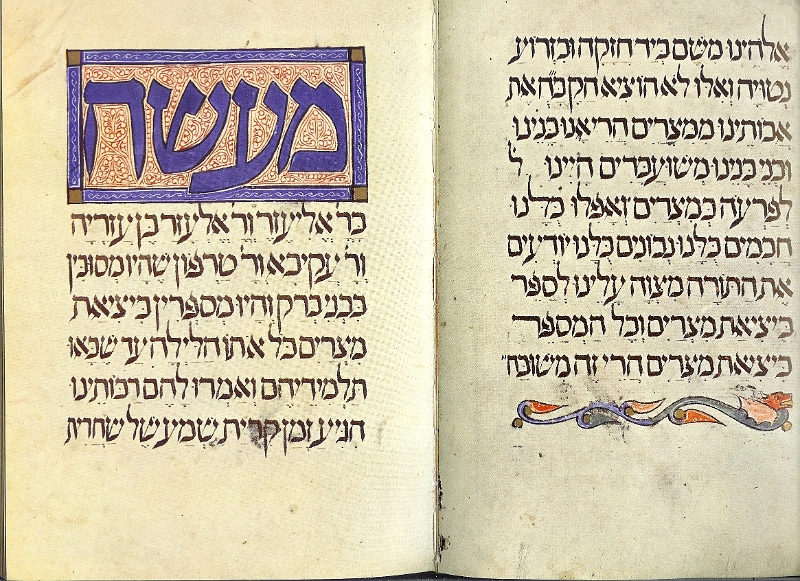 אלהינו משם ביד חזקה ובזרוע
נטויה ואלו לא הוציא הקב״ה את
אבותינו ממצרים הרי אנו בנינו
ובני בנינו משועבדים היינו ל
לפרעה במצרים ואפלו כלנו
חכמים כלנו נבונים כלנו יודעים
את התורה מצוה עלינו לספר
ביציאת מצרים וכל המספר
ביציאת מצרים הרי זה משובח
מעשה
בר׳ אליעזר ור׳ אלעזר בן עזריה
ור׳ עקיבא ור׳ טרפון שהיו מסובין
בבני ברק והיו מספרין ביציאת
מצרים כל אתו הלילה עד שבאו
תלמידיהם ואמרו להם רבותינו
הגיע זמן קרית שמע של שחרית